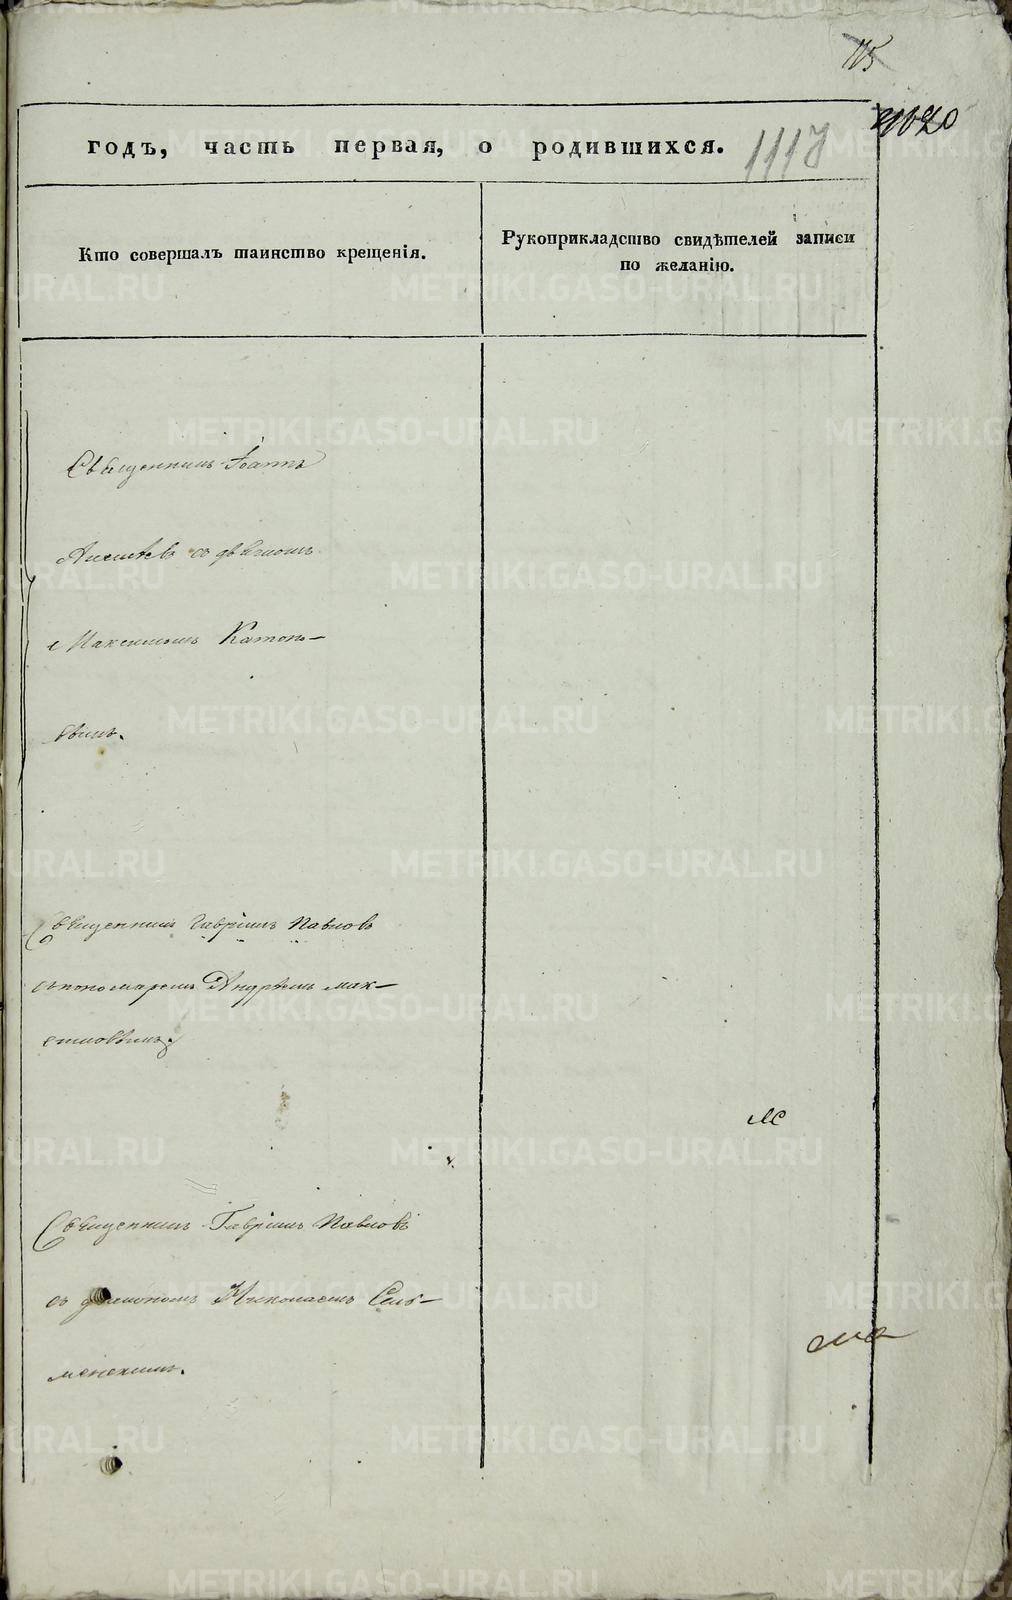 115
1117
годъ, часть первая, о родившихся.
Кто совершалъ таинство крещенія.
Рукоприкладство свидѣтелей записи
по желанію.
Священникъ Іоаннъ
съ дьячкомъ
Максимомъ Катоно-
вымъ.
Священникъ Гавріилъ Павловъ
съ пономаремъ Андреемъ Мак-
симовымъ.
Священникъ Гавріилъ Павловъ
съ дьякономъ Николаемъ Сель-
менскимъ.
METRIKI.GASO-URAL.RU